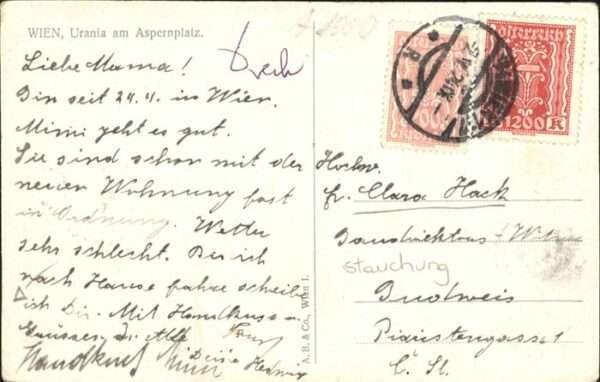 WIEN, Urania am Aspernplatz.
Liebe Mama!
Bin seit 24. 4. in Wien.
Mimi geht es gut.
Sie sind schon mit der
neuen Wohnung fast
in Ordnung. Wetter
sehr schlecht. Bis ich
nach Hause fahre schreibe
ich Dir. Mit Handkuss u.
Grüssen an Alle
Handkuss Mimi
A. R. & Co., Wien I.
österreich
1200 K
Hochw.
Fr. Clara Hack
stauchung
Budweis
Piaristengasse 1
Č. Sl.